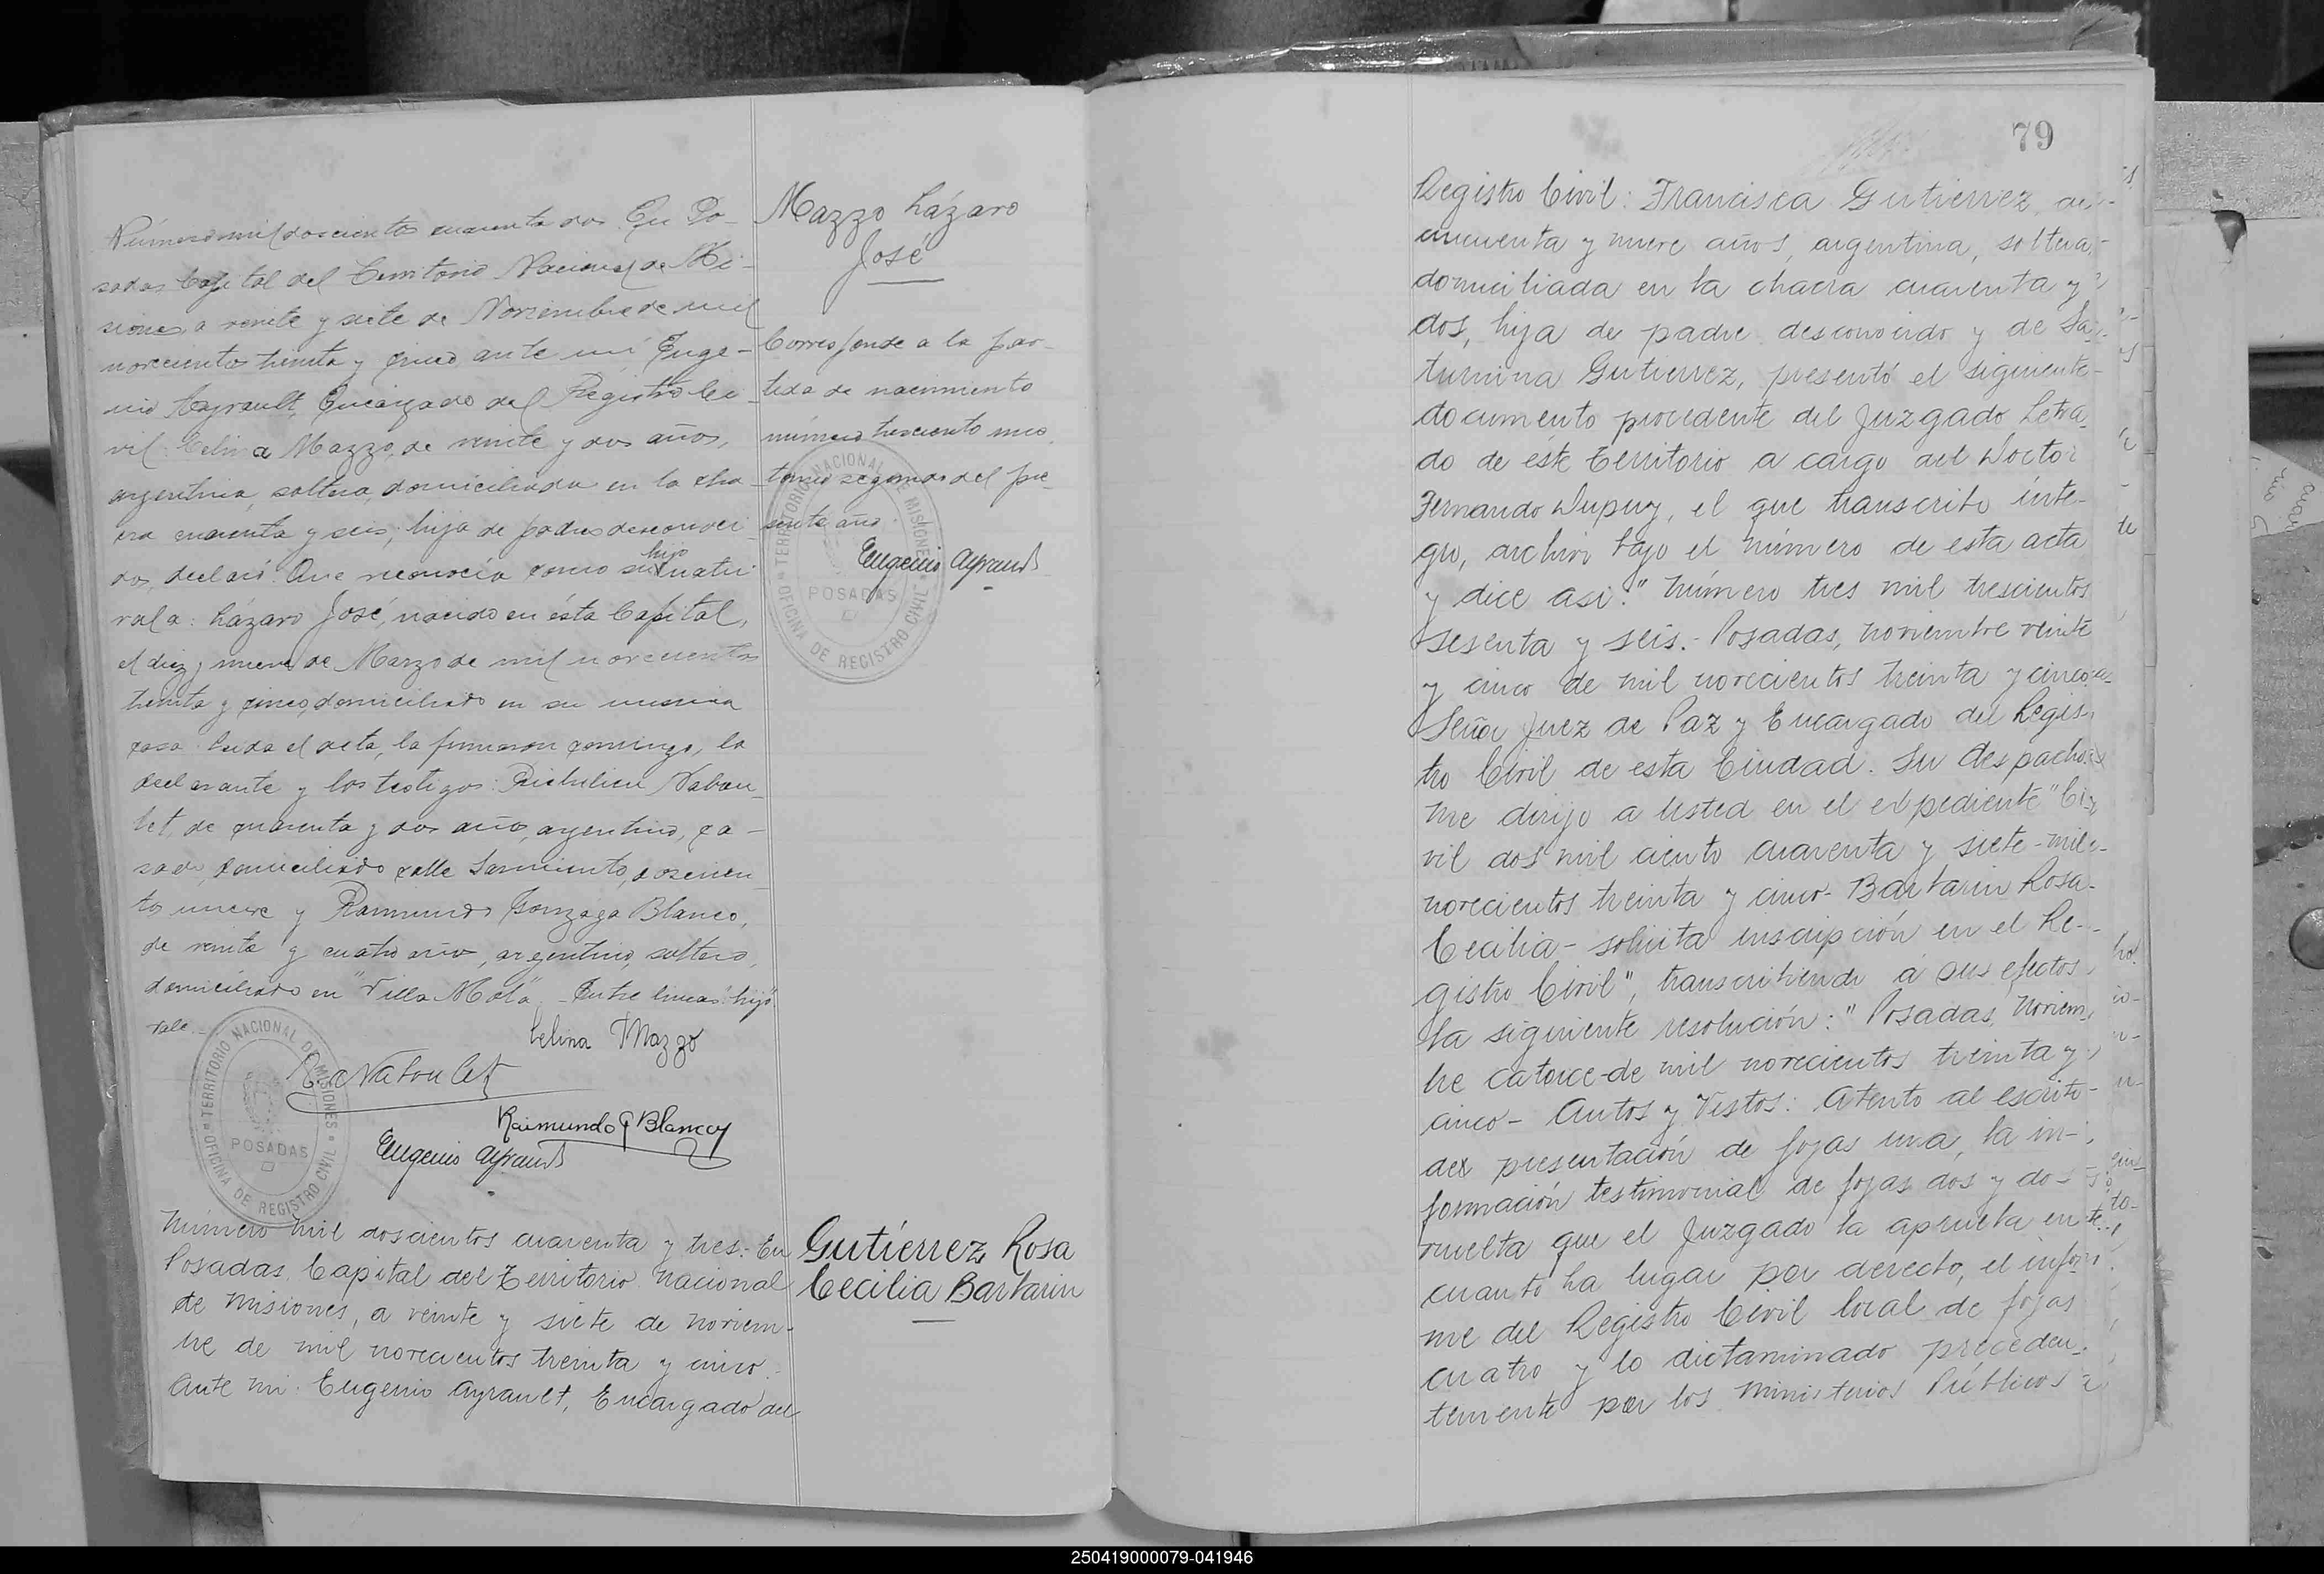 Número mil doscientos cuarenta dos. En Po-
sadas Capital del Territorio Nacional de Mi-
siones a veinte y siete de Noviembre de mil
novecientos treinta y cinco ante mi Euge-
nio Ayrault, Encargado del Registro Ci-
vil: Celina Mazzo, de veinte y dos años,
argentina, soltera, domiciliada en la cha-
cra cuarenta y seis, hija de padres desconoci-
dos, declaró: Que reconocía como su hijo natu-
ral a: Lázaro José, nacido en ésta Capital,
el diez y nueve de Marzo de mil novecientos
treinta y cinco, domiciliado en su misma
casa. Leida el acta, la firmaron conmigo, la
declarante y los testigos: Richelieu Nabou-
let, de cuarenta y dos años, argentino, ca-
sado, domiciliado calle Sarmiento, doscien-
tos nueve y Raimundo Gonzaga Blanco,
de veinte y cuatro años, argentino, soltero,
domiciliado en "Villa Mola". Entre lineas: "hijo".
vale.-
Celina Mazzo
R. Naboulet
Raimundo G Blanco
Eugenio Ayrault
TERRITORIO NACIONAL DE MISIONES
POSADAS
OFICINA DE REGISTRO CIVIL
Mazzo Lázaro
José
Corresponde a la par-
tida de nacimiento
número trescientos uno
tomo segundo del pre-
sente año.
Eugenio Ayrault
TERRITORIO NACIONAL DE MISIONES
POSADAS
OFICINA DE REGISTRO CIVIL
Número mil doscientos cuarenta y tres.- En
Posadas, Capital del Territorio Nacional
de Misiones, a veinte y siete de noviem-
bre de mil novecientos treinta y cinco.-
Ante mi: Eugenio Ayrault, Encargado del
Gutiérrez Rosa
Cecilia Barbarin
79
Registro Civil: Francisca Gutierrez, de
cincuenta y nueve años, argentina, soltera,
domiciliada en la chacra cuarenta y
dos, hija de padre desconocido y de Sa-
turnina Gutierrez, presentó el siguiente
documento procedente del Juzgado Letra-
do de éste Territorio a cargo del Doctor
Fernando Dupuy, el que transcribo ínte-
gro, archivo bajo el número de esta acta
y dice asi: "Número tres mil trescientos
sesenta y seis.- Posadas, noviembre veinte
y cinco de mil novecientos treinta y cinco.-
Señor Juez de Paz y Encargado del Regis-
tro Civil de esta Ciudad. Su despacho.-
Me dirijo a Usted en el expediente "Ci-
vil dos mil ciento cuarenta y siete-mil
novecientos treinta y cinco- Barbarin Rosa
Cecilia - solicita inscripción en el Re-
gistro Civil", transcribiendo á sus efectos
la siguiente resolución: "Posadas, Noviem-
bre catorce de mil novecientos treinta y
cinco- Autos y Vistos: Atento al escrito
de presentación de fojas una, la in-
formación testimonial de fojas dos y dos
vuelta que el Juzgado la aprueba en
cuanto ha lugar por derecho, el infor-
me del Registro Civil local de fojas
cuatro y lo dictaminado preceden-
temente por los Ministerios Públicos
250419000079-041946